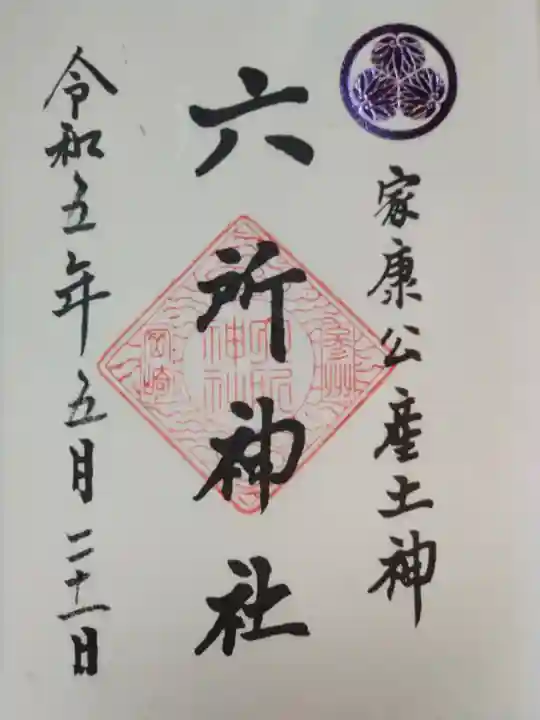 家康公産土神
六所神社
令和五年五月二十一日
参州
六所
神社
岡崎